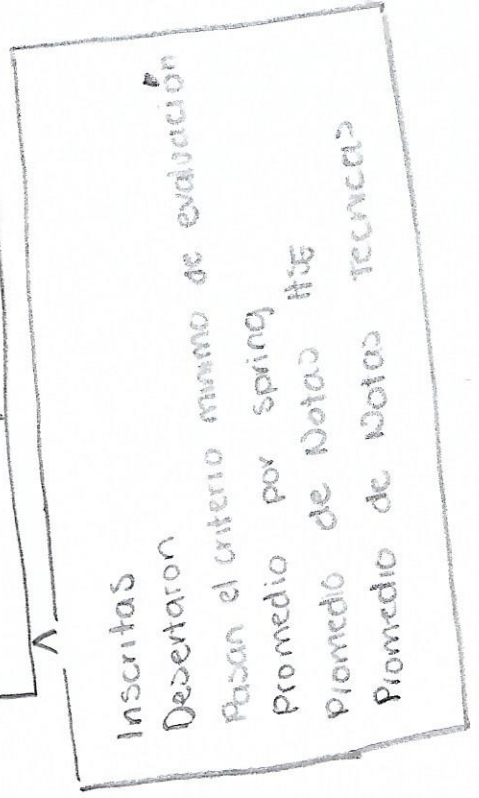 Inscritas
Desertaron
Pasan el criterio minimo de evaluación
promedio por spring
promedio de Notas HSE
Promedio de Notas Tecnicas